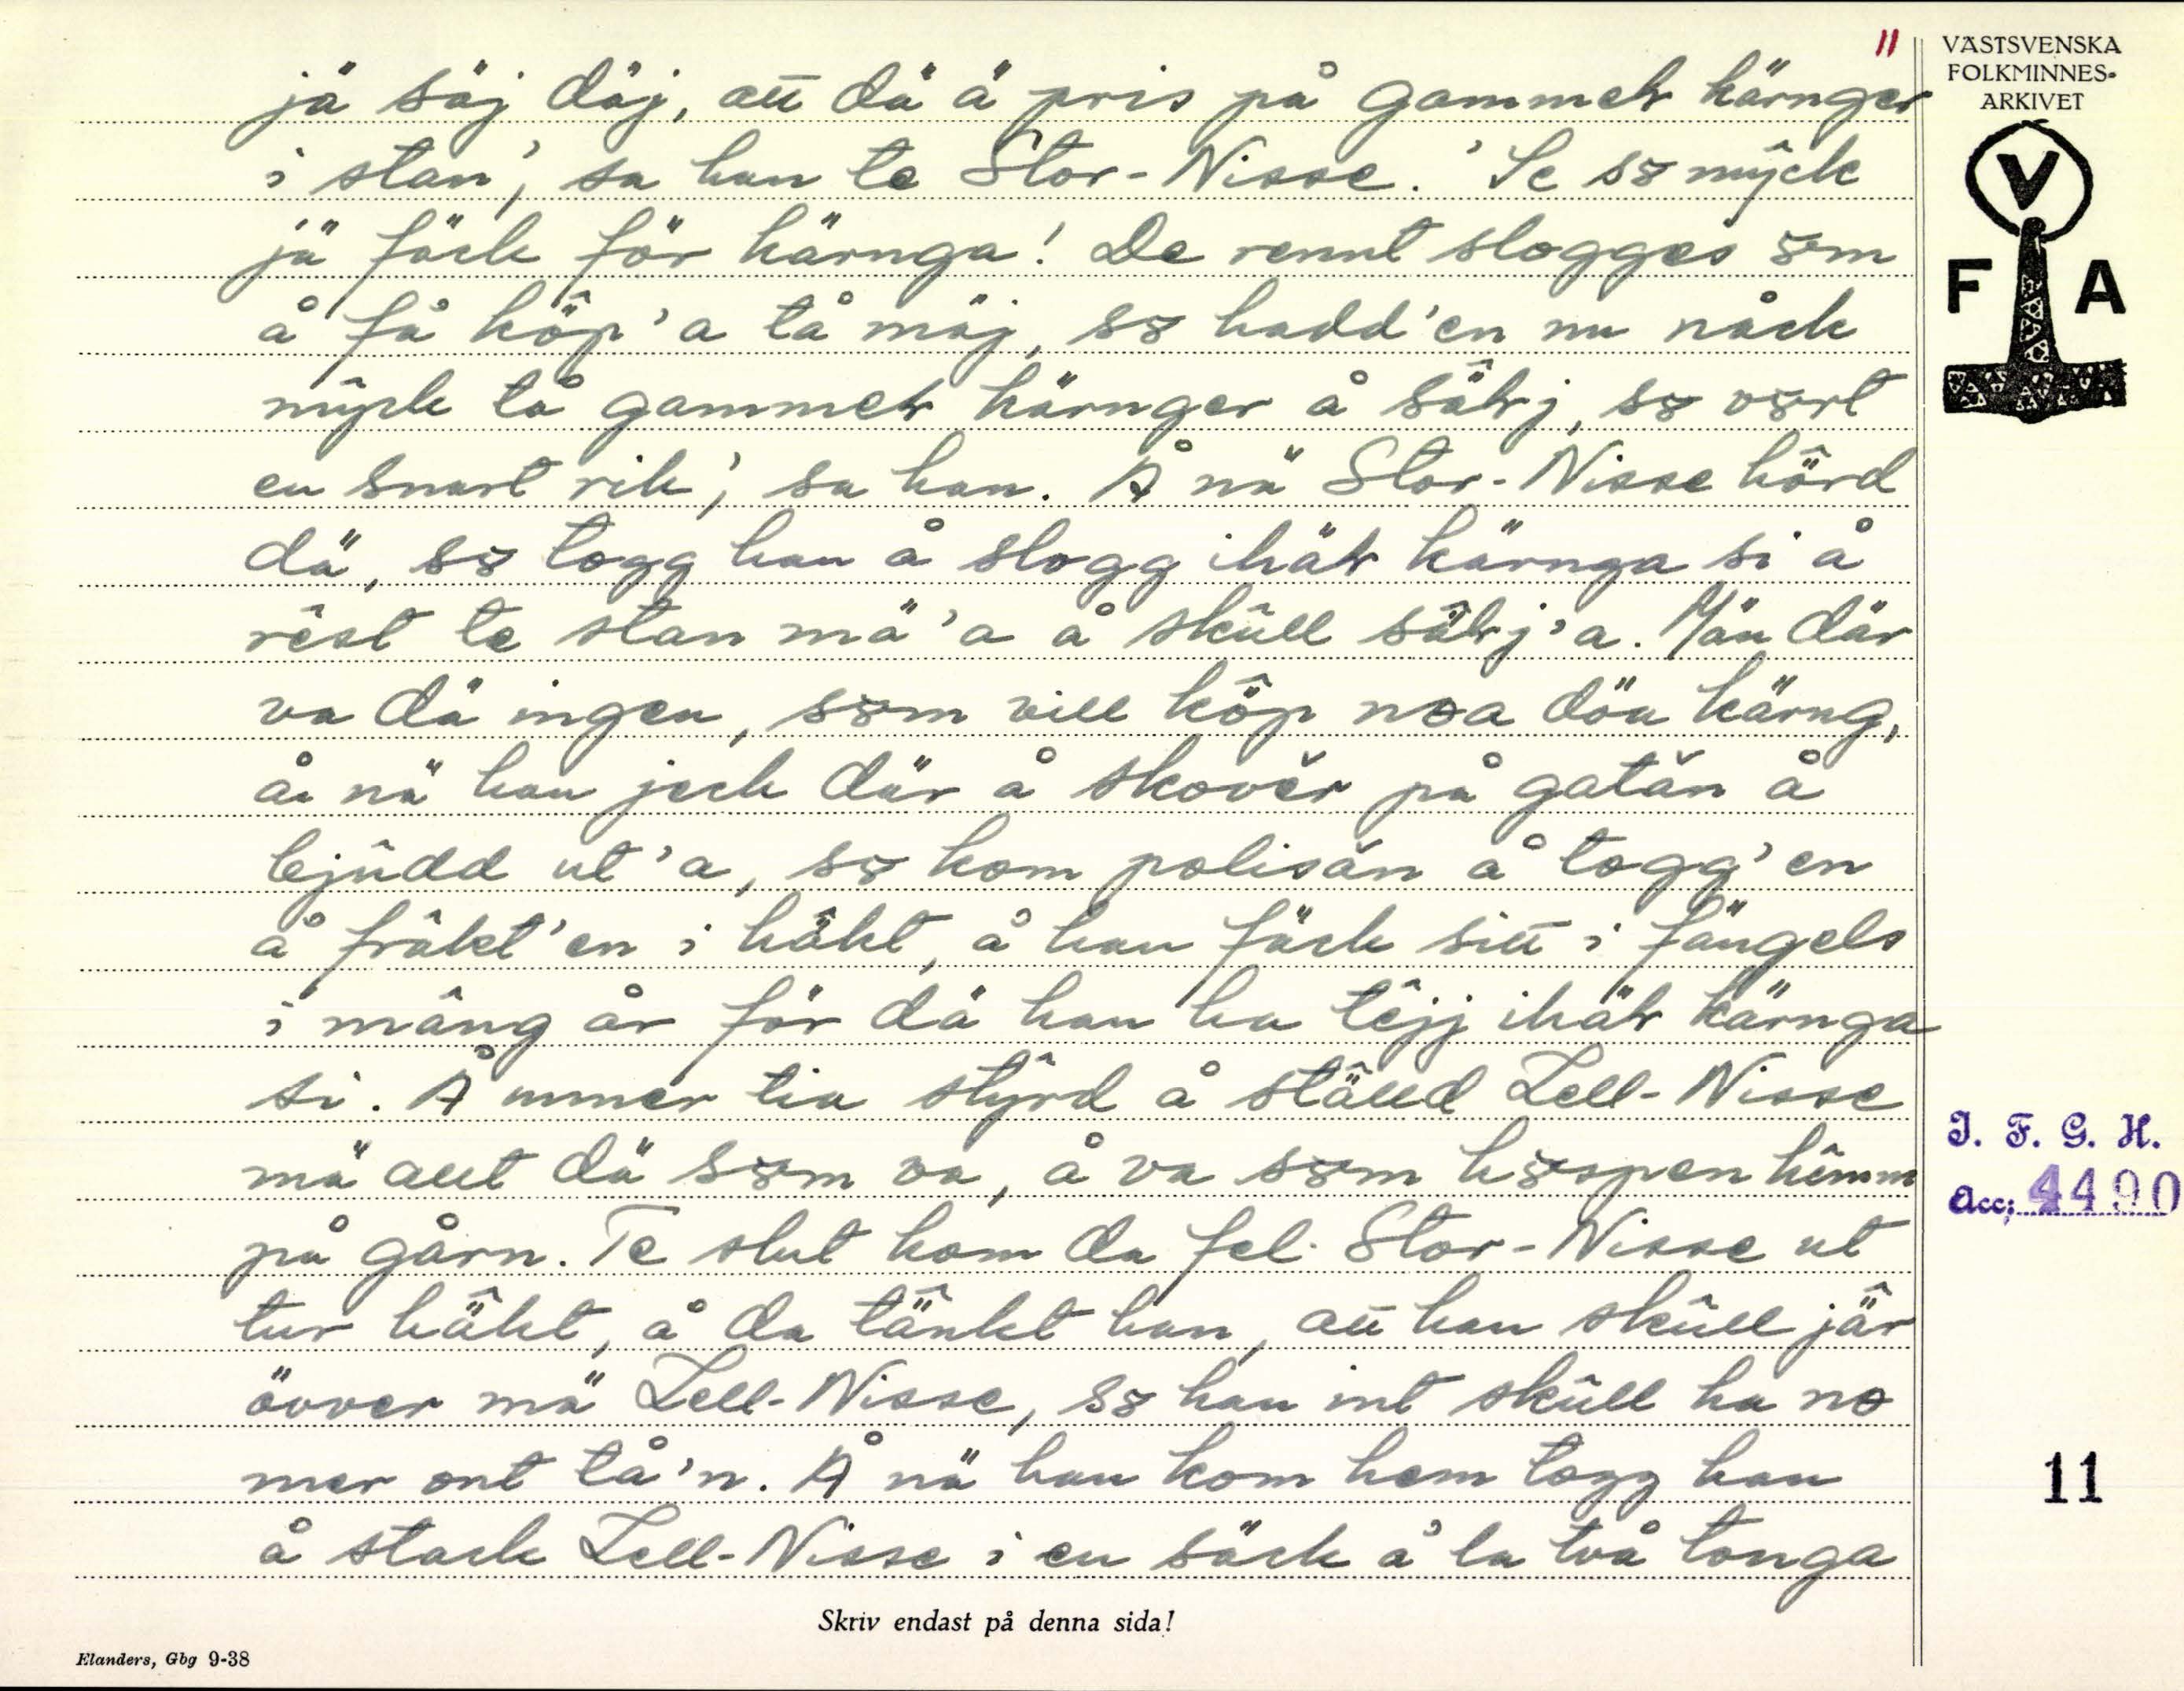 11
VÄSTSVENSKA
FOLKMINNES-
ARKIVET
V
F A
jä säj däj, att dä ä pris på gammeƚ kärnger
i stan', sa han te Stor-Nisse. 'Se sȣ mŷck
jä fäck för kärnga! De rennt slogges ȣm
å få köp̂'a tå mäj, sȣ hadd'en nu nåck
mŷck tå gammeƚ kärnger å säƚ̂j, sȣ vȣrt
en snart rik', sa han. Å nä Stor-Nisse hörd̂
dä, sȣ togg han å slogg ihäƚ kärnga si å
rêst te stan mä'a å skûll säƚ̂j'a. Män där
va dä ingen, sȣm vill köp̂ nɷa döa kärng,
å nä han jeck där å skovĕr på gatăn å
bjûdd ut'a, sȣ kom polisăn å togg'en
å frâkt'en i häk̂t, å han fäck sitt i fängels
i mâng år för dä han ha têjj ihäƚ kärnga
si. Å unner tia stŷrd å stäl̂ld Lell-Nisse
mä allt dä sȣm va, å va sȣm hȣspen hêmm
på gårn. Te slut kom da fel Stor-Nisse ut
tur häk̂t, å da tän̂kt han, att han skûll jär̂
övver mä Lell-Nisse, sȣ han int skûll ha nɷ
mer ont tå'n. Å nä han kom hem togg han
å stack Lell-Nisse i en säck å la två tonga
I. F. G. H.
Acc; 4490
11
Skriv endast på denna sida!
Elanders, Gbg 9-38